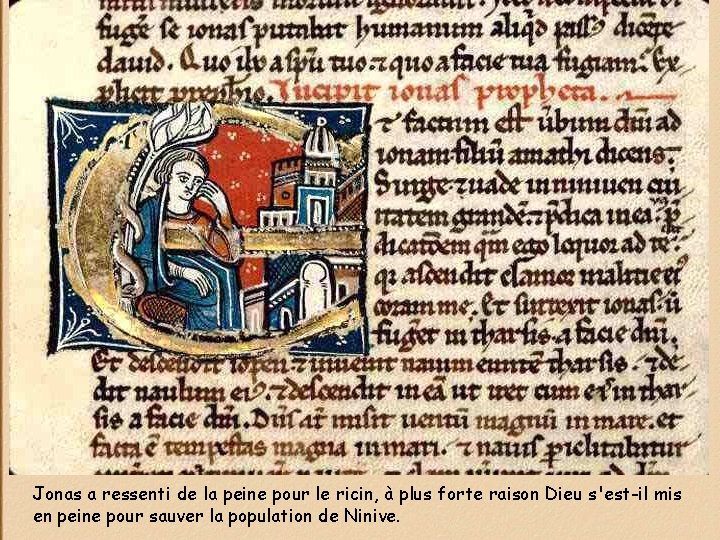 fug͛e se ionas putabat humanum aliqd dic͛e
dauid. Quo ibo a spu tuo. ⁊ quo a facie tua fugiam. Ex
plicit Incipit ionas propheta.
⁊ factum est ūbum dnī ad
ionam filiū amathi dicens.
Surge ⁊ uade in niniuen ciui
tatem grandē. ⁊ p̄dica in ea.
ego loquor ad te.
q̄ ascendit clamor malicie ei᷒
coram me. Et surrexit ionas. ū
fug͛et in tharsis. a facie dnī.
Et descendit iopen. ⁊ inuenit nauim eunte͞ tharsis. ⁊ de
dit naulum ei᷒. ⁊ descendit in eā ut iret cum eis in thar
sis a facie dnī. Dn̄s at̄ misit uentū magnū in mare. et
facta ē tempestas magna in mari. ⁊ nauis piclitabatur
Jonas a ressenti de la peine pour le ricin, à plus forte raison Dieu s'est-il mis
en peine pour sauver la population de Ninive.